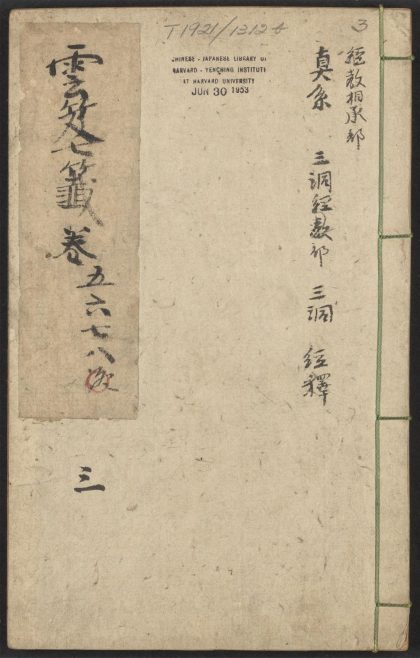 T 1921/1312
3
CHINESE - JAPANESE LIBRARY OF
HARVARD - YENCHING INSTITUTE
AT HARVARD UNIVERSITY
JUN 30 1953
經教相承部
真系 三洞經教部 三洞 經釋
雲笈七籤卷五六七八
三